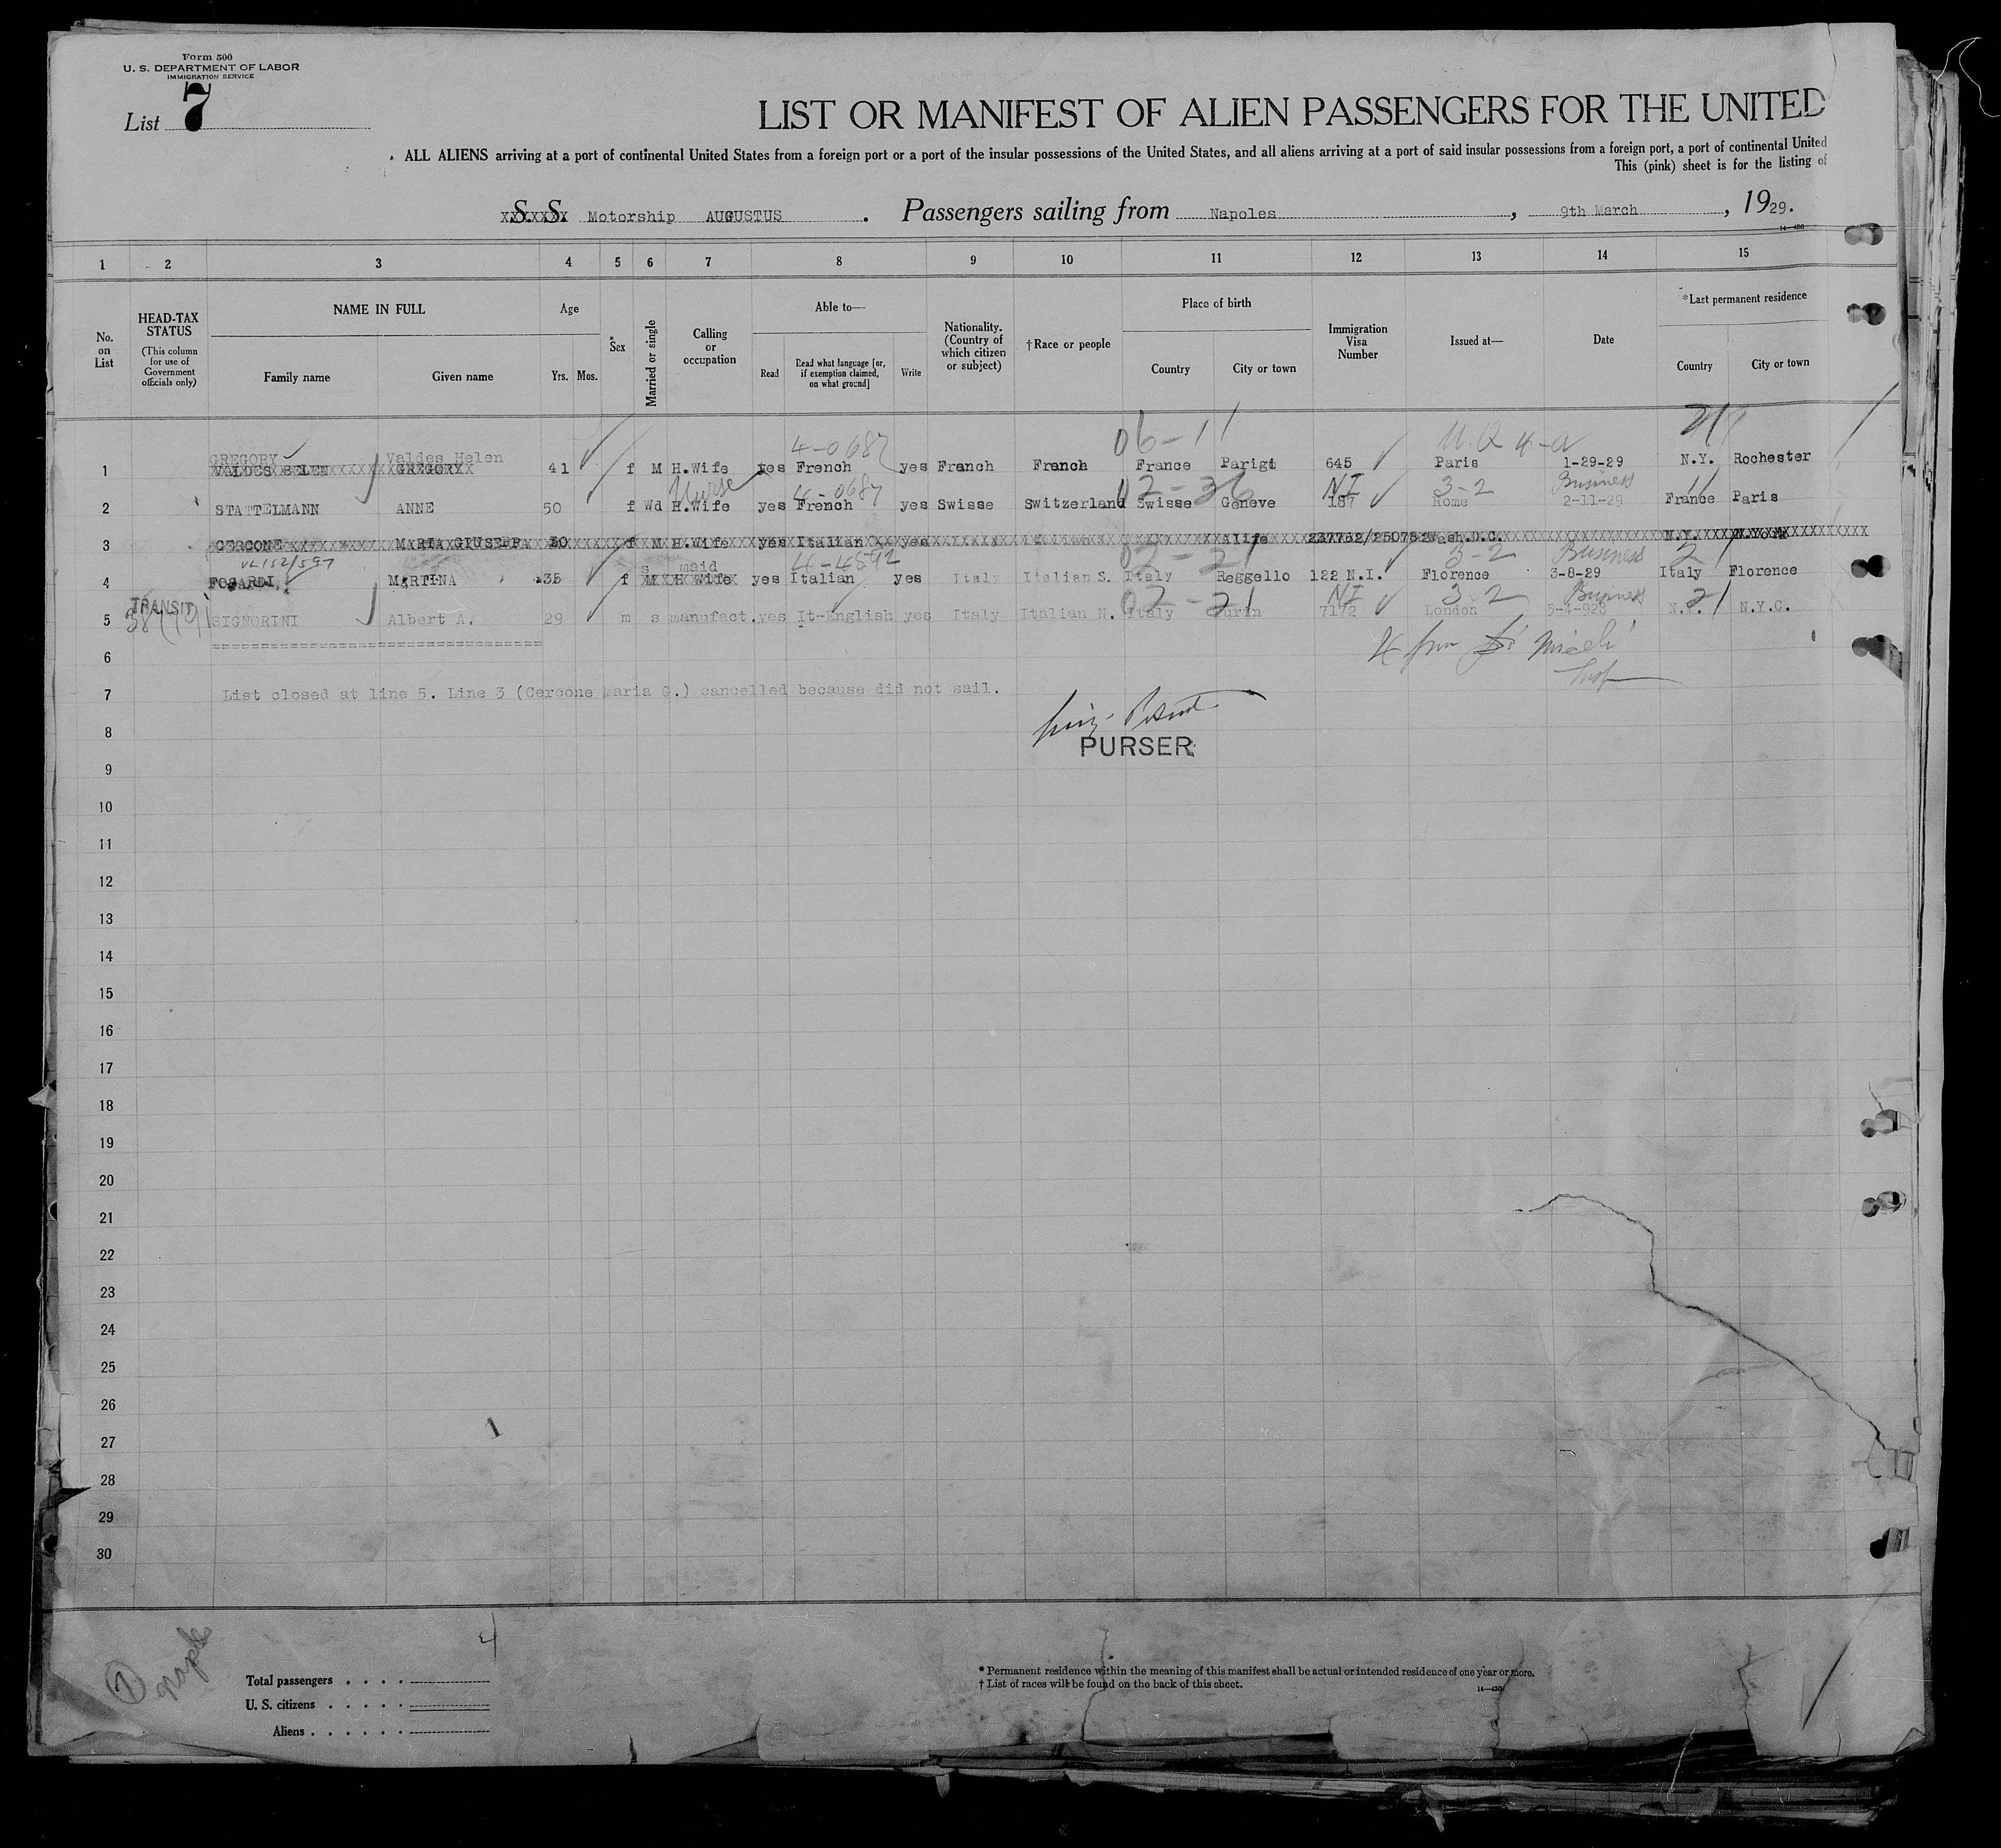 Form 500
U. S. DEPARTMENT OF LABOR
IMMIGRATION SERVICE
List 7
LIST OR MANIFEST OF ALIEN PASSENGERS FOR THE UNITED
ALL ALIENS arriving at a port of continental United States from a foreign port or a port of the insular possessions of the United States, and all aliens arriving at a port of said insular possessions from a foreign port, a port of continental United
This (pink) sheet is for the listing of
S. S. Motorship AUGUSTUS . Passengers sailing from Napoles , 9th March , 1929.
14-430
1 2 3 4 5 6 7 8 9 10 11 12 13 14 15
No. on List
HEAD-TAX STATUS (This column for use of Government officials only)
NAME IN FULL
Family name Given name
Age
Yrs. Mos.
Sex
Married or single
Calling or occupation
Able to—
Read Read what language [or, if exemption claimed, on what ground] Write
Nationality. (Country of which citizen or subject)
†Race or people
Place of birth
Country City or town
Immigration Visa Number
Issued at—
Date
*Last permanent residence
Country City or town
4-0687 06-11
GREGORY Valdes Helen
1 VALDES BELEN GREGORY 41 f M H.Wife yes French yes Franch Franch France Parigi 645 Paris 1-29-29 N.Y. Rochester
Nurse 4-0687 02-36 NI 3-2 Business 11
2 STATTELMANN ANNE 50 f Wd H.Wife yes French yes Swisse Switzerland Swisse Geneve 187 Rome 2-11-29 France Paris
3 CERCONE MARIA GIUSEPPA 30 f M H.Wife yes Italian yes Alife Wash.D.C. N.Y. N.York
s maid 4-4592 02-21 3-2 Business 2
4 FOGARDI MARTINA 35 f M H Wife yes Italian yes Italy Italian S. Italy Reggello 122 N.I. Florence 3-8-29 Italy Florence
TRANSIT 02-21 NI 3-2 Business 21
5 SIGNORINI Albert A. 29 m s manufact. yes It-English yes Italy Italian N. Italy Turin 7172 London 5-4-928 N.Y. N.Y.C.
6
7 List closed at line 5. Line 3 (Cercone Maria G.) cancelled because did not sail.
8 PURSER
9
10
11
12
13
14
15
16
17
18
19
20
21
22
23
24
25
26
27
28
29
30
4
Total passengers
U. S. citizens
Aliens
* Permanent residence within the meaning of this manifest shall be actual or intended residence of one year or more.
† List of races will be found on the back of this sheet.
14-430